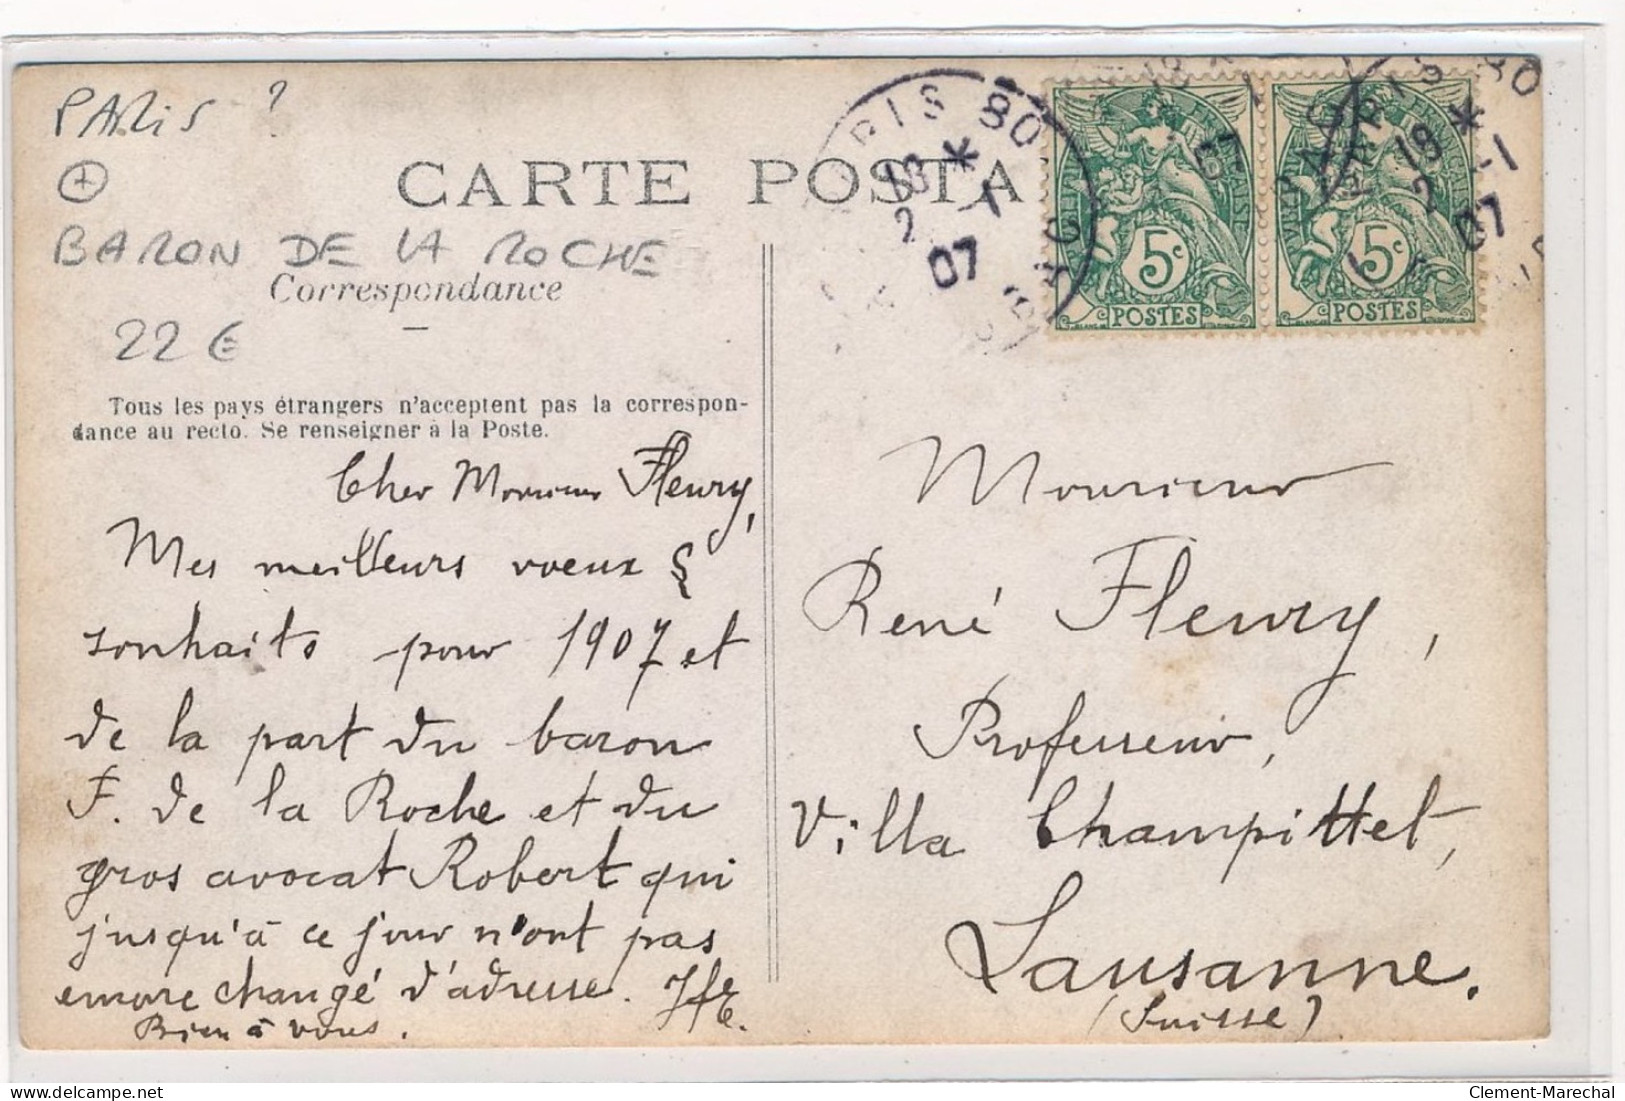 PARIS ?
+
CARTE POSTA
BARON DE LA ROCHE
Correspondance
22 €
Tous les pays étrangers n'acceptent pas la correspon-
dance au recto. Se renseigner à la Poste.
Cher Monsieur Fleury,
Mes meilleurs voeux &
souhaits pour 1907 et
de la part du baron
F. de la Roche et du
gros avocat Robert qui
jusqu'à ce jour n'ont pas
encore changé d'adresse.
Bien à vous.
PARIS 80
18 *
2 -1
07
5c
POSTES
5c
POSTES
PARIS 80
18 *
2 -1
07
Monsieur
René Fleury,
Professeur,
Villa Champittet,
Lausanne.
(Suisse)
Clement-Marechal